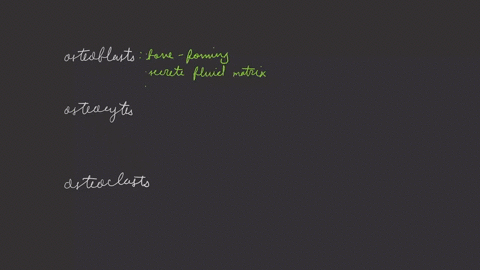 osteoblasts : bone - forming
secrete fluid matrix
osteocytes
osteoclasts